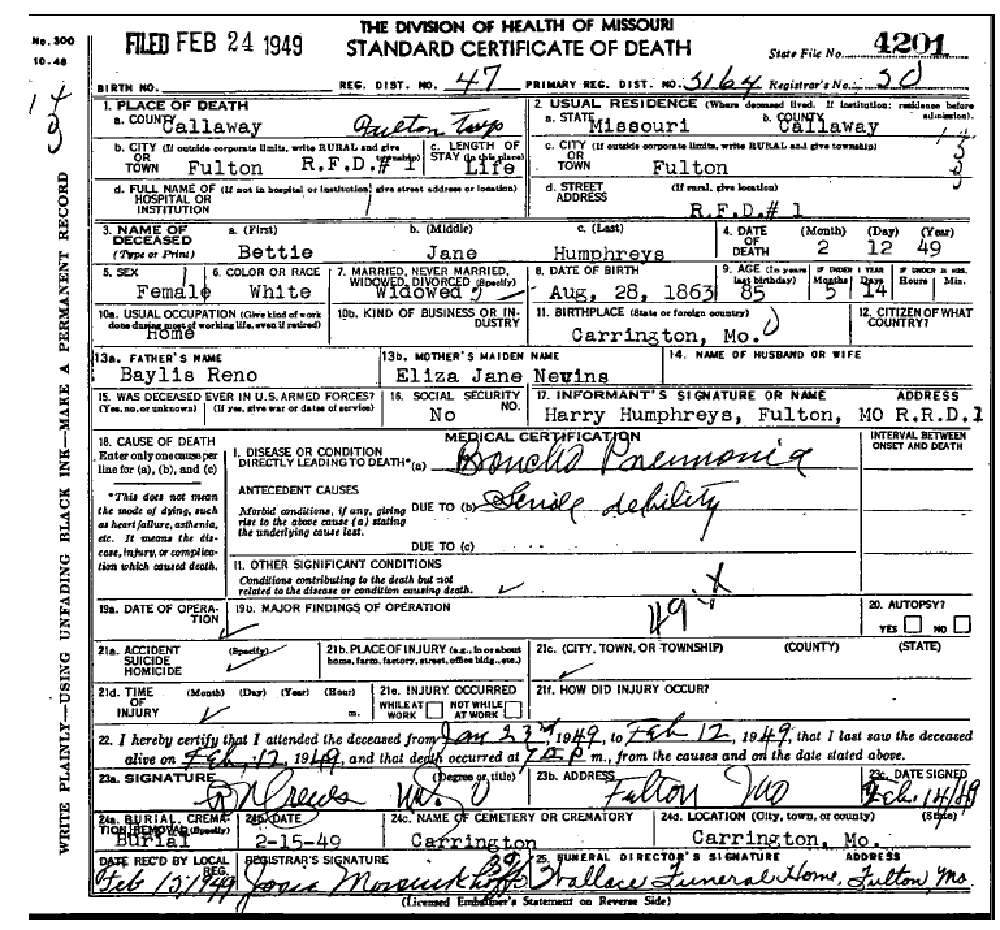 THE DIVISION OF HEALTH OF MISSOURI
STANDARD CERTIFICATE OF DEATH
No. 300
10-48
FILED FEB 24 1949
State File No. 4201
BIRTH NO. REG. DIST. NO. 47 PRIMARY REG. DIST. NO. 3164 Registrar's No. 50
1. PLACE OF DEATH
a. COUNTY Callaway Fulton Twp
2. USUAL RESIDENCE (Where deceased lived. If institution: residence before admission).
a. STATE Missouri b. COUNTY Callaway
b. CITY (If outside corporate limits, write RURAL and give township) OR TOWN Fulton R.F.D.# 1
c. LENGTH OF STAY (in this place) Life
c. CITY (If outside corporate limits, write RURAL and give township) OR TOWN Fulton
d. FULL NAME OF (If not in hospital or institution, give street address or location) HOSPITAL OR INSTITUTION
d. STREET ADDRESS (If rural, give location) R.F.D.# 1
3. NAME OF DECEASED (Type or Print) a. (First) Bettie b. (Middle) Jane c. (Last) Humphreys
4. DATE OF DEATH (Month) (Day) (Year) 2 12 49
5. SEX Female
6. COLOR OR RACE White
7. MARRIED, NEVER MARRIED, WIDOWED, DIVORCED (Specify) Widowed
8. DATE OF BIRTH Aug, 28, 1863
9. AGE (In years last birthday) 85 IF UNDER 1 YEAR Months 5 Days 14 IF UNDER 24 HRS. Hours Min.
10a. USUAL OCCUPATION (Give kind of work done during most of working life, even if retired) Home
10b. KIND OF BUSINESS OR INDUSTRY
11. BIRTHPLACE (State or foreign country) Carrington, Mo.
12. CITIZEN OF WHAT COUNTRY?
13a. FATHER'S NAME Baylis Reno
13b. MOTHER'S MAIDEN NAME Eliza Jane Nevins
14. NAME OF HUSBAND OR WIFE
15. WAS DECEASED EVER IN U.S. ARMED FORCES? (Yes, no, or unknown) (If yes, give war or dates of service)
16. SOCIAL SECURITY NO. No
17. INFORMANT'S SIGNATURE OR NAME ADDRESS
Harry Humphreys, Fulton, MO R.R.D.1
18. CAUSE OF DEATH
Enter only one cause per line for (a), (b), and (c)
*This does not mean the mode of dying, such as heart failure, asthenia, etc. It means the disease, injury, or complication which caused death.
MEDICAL CERTIFICATION
INTERVAL BETWEEN ONSET AND DEATH
I. DISEASE OR CONDITION DIRECTLY LEADING TO DEATH*(a) Boncho Pneumonia
ANTECEDENT CAUSES
Morbid conditions, if any, giving rise to the above cause (a) stating the underlying cause last.
DUE TO (b) Senile debility
DUE TO (c)
II. OTHER SIGNIFICANT CONDITIONS
Conditions contributing to the death but not related to the disease or condition causing death.
19a. DATE OF OPERATION
19b. MAJOR FINDINGS OF OPERATION
20. AUTOPSY?
YES NO
21a. ACCIDENT SUICIDE HOMICIDE (Specify)
21b. PLACE OF INJURY (e.g., in or about home, farm, factory, street, office bldg., etc.)
21c. (CITY, TOWN, OR TOWNSHIP) (COUNTY) (STATE)
21d. TIME OF INJURY (Month) (Day) (Year) (Hour) m.
21e. INJURY OCCURRED WHILE AT WORK NOT WHILE AT WORK
21f. HOW DID INJURY OCCUR?
22. I hereby certify that I attended the deceased from Jan 23rd, 1949, to Feb 12, 1949, that I last saw the deceased
alive on Feb. 12, 1949, and that death occurred at 7 P m., from the causes and on the date stated above.
23a. SIGNATURE (Degree or title) Crews M.D
23b. ADDRESS Fulton Mo
23c. DATE SIGNED Feb. 14/49
24a. BURIAL, CREMATION, REMOVAL (Specify) Burial
24b. DATE 2-15-49
24c. NAME OF CEMETERY OR CREMATORY Carrington
24d. LOCATION (City, town, or county) (State) Carrington, Mo.
DATE REC'D BY LOCAL REG. Feb 15 1949
REGISTRAR'S SIGNATURE Josie
25. FUNERAL DIRECTOR'S SIGNATURE ADDRESS
Wallace Funeral Home, Fulton, Mo.
(Licensed Embalmer's Statement on Reverse Side)
WRITE PLAINLY—USING UNFADING BLACK INK—MAKE A PERMANENT RECORD